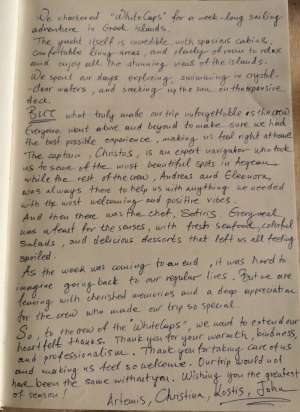 We chartered "WhiteCaps" for a week-long sailing
adventure in Greek islands.
The yacht itself is incredible with spacious cabins,
comfortable living areas, and plenty of room to relax
and enjoy all the stunning views of the islands.
We spent our days exploring, swimming in crystal-
clear waters, and soaking up the sun on the expansive
deck.
BUT what truly made our trip unforgettable is the crew
Everyone went above and beyond to make sure we had
the best possible experience, making us feel right at home
The captain, Christos, is an expert navigator who took
us to some of the most beautiful spots in Aegean
while the rest of the crew, Andreas and Eleonora,
was always there to help us with anything we needed
with the most welcoming and positive vibes.
And then there was the chef, Sotiris. Every meal
was a feast for the senses, with fresh seafood, colorful
salads, and delicious desserts that left us all feeling
spoiled.
As the week was coming to an end, it was hard to
imagine going back to our regular lives. But we are
leaving with cherished memories and a deep appreciation
for the crew who made our trip so special.
So, to the crew of the "Whitecaps", we want to extend our
heartfelt thanks. Thank you for your warmth, kindness,
and professionalism. Thank you for taking care of us
and making us feel so welcome. Our trip would not
have been the same without you. Wishing you the greatest
of season!
Artemis, Christina, Kostis, John